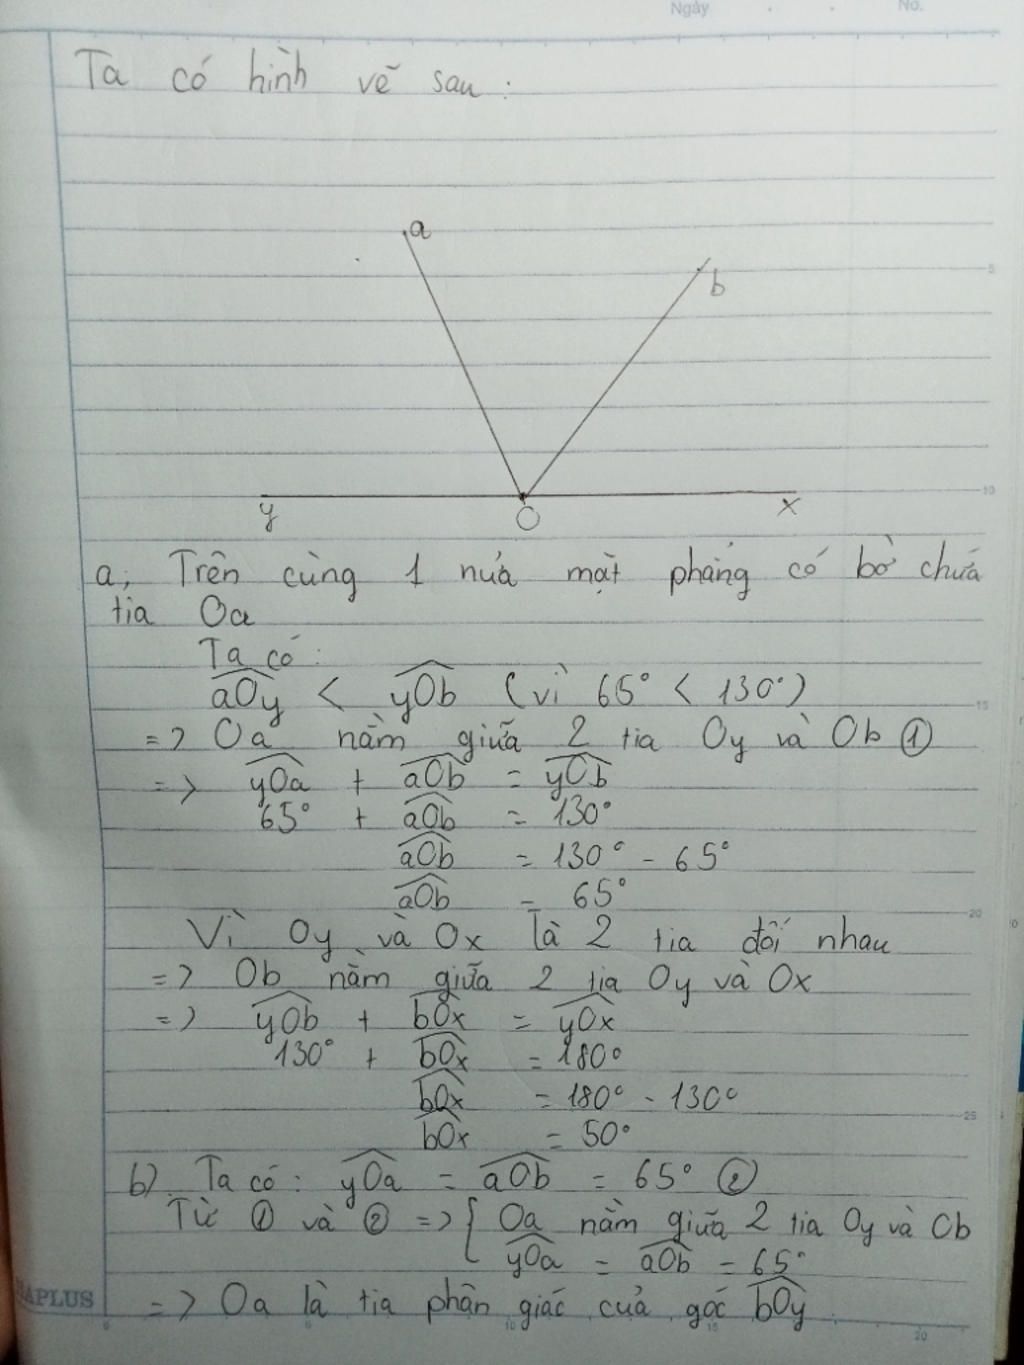 Ngày No.
Ta có hình vẽ sau:
a
b
5
y O x
10
a; Trên cùng 1 nửa mặt phẳng có bờ chứa
tia Oa
Ta có:
aOy < yOb (vì 65° < 130°)
15
=> Oa nằm giữa 2 tia Oy và Ob ①
=> yOa + aOb = yOb
65° + aOb = 130°
aOb = 130° - 65°
aOb = 65°
20
Vì Oy và Ox là 2 tia đối nhau
=> Ob nằm giữa 2 tia Oy và Ox
=> yOb + bOx = yOx
130° + bOx = 180°
bOx = 180° - 130°
25
bOx = 50°
b) Ta có: yOa = aOb = 65° ②
Từ ① và ② => { Oa nằm giữa 2 tia Oy và Ob
yOa = aOb = 65°
=> Oa là tia phân giác của góc bOy
APLUS
5 10 15 20